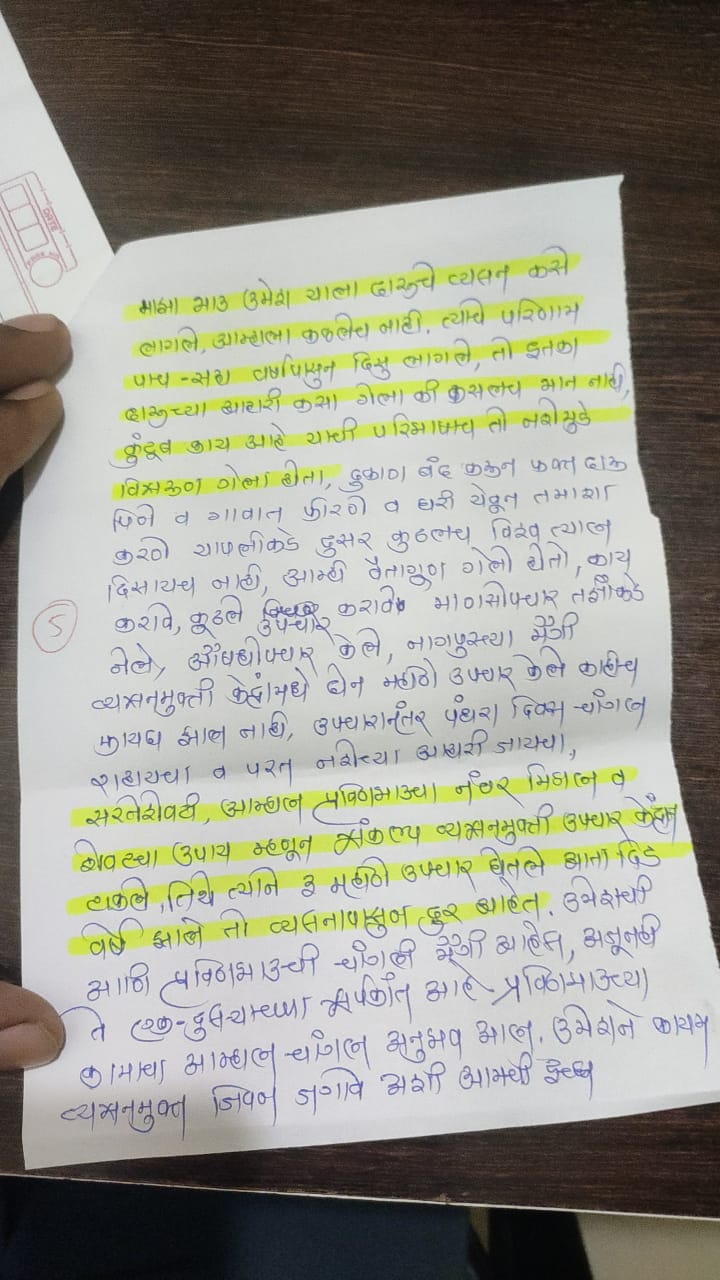 DATE
माझा भाऊ उमेश याला दारूचे व्यसन कसे
लागले, आम्हाला कळलेच नाही. त्याचे परिणाम
पाच-सहा वर्षापासुन दिसु लागले, तो इतका
दारूच्या आहारी कसा गेला की कसलच भान नाही,
कुंटूंब काय आहे याची परिभाषाच तो नशेमुळे
विसरूण गेला होता, दुकाण बंद करून फक्त दारू
पिने व गावात फीरणे व घरी येवून तमाशा
करणे यापलीकडे दुसर कुठलच विश्व त्याल
दिसायच नाही, आम्ही वैतागूण गेलो होतो, काय
करावे, कूठले उपचार करावे माणसोपचार तज्ञांकडे
5
नेले, औषधोपचार केले, नागपुरच्या मैत्री
व्यसनमुक्ती केंद्रामधे दोन महीणे उपचार केले काहीच
फायदा झाला नाही, उपचारानंतर पंधरा दिवस चांगला
राहायचा व परत नशेच्या आहारी जायचा,
सरतेशेवटी, आम्हाल प्रविणभाऊचा नंबर मिळाल व
शेवटचा उपाय म्हणून संकल्प व्यसनमुक्ती उपचार केंद्रात
टाकले, तिथे त्याने 3 महीणे उपचार घेतले आता दिड
वर्ष झाले तो व्यसनापासुन दुर आहेत. उमेशची
आणि प्रविणभाऊची चांगली मैत्री आहेस, अजूनही
ते एक-दुसऱ्याच्या संपर्कात आहे. प्रविणभाऊच्या
कामाचा आम्हाल चांगल अनुभव आल. उमेशने कायम
व्यसनमुक्त जिवन जगावे अशी आमची इच्छा